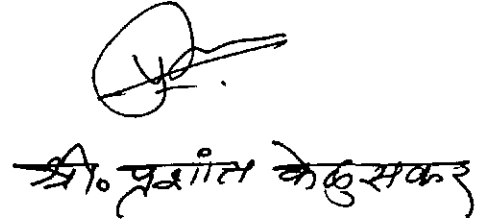 श्री. प्रशांत केळुसकर